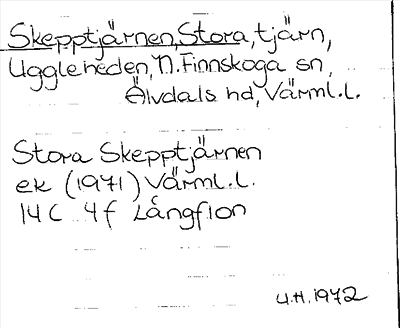 Skepptjärnen, Stora, tjärn,
Uggleheden, N. Finnskoga sn,
Älvdals hd, Värml.l.
Stora Skepptjärnen
ek (1971) Värml.l.
14 C 4 f Långflon
U.H. 1972